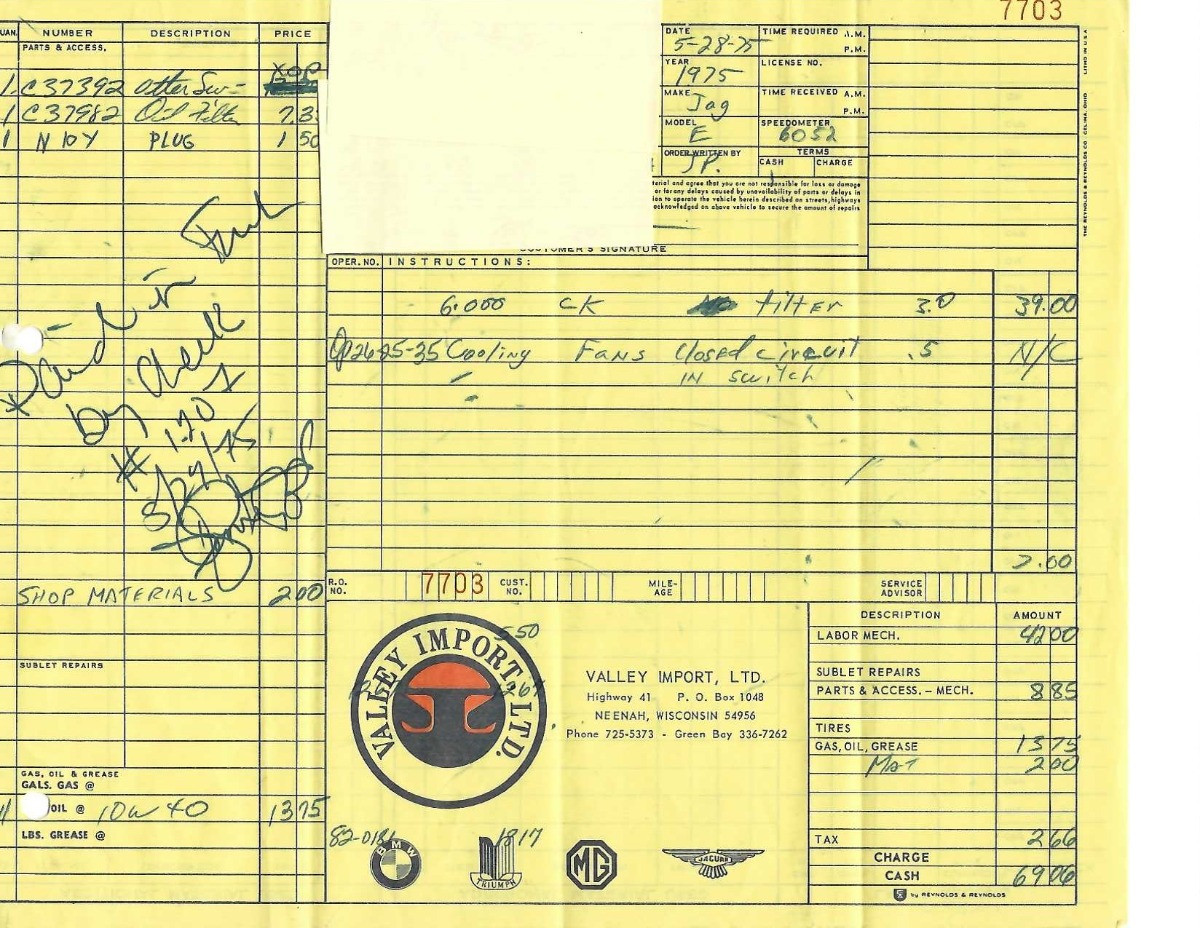 7703
UAN. NUMBER DESCRIPTION PRICE
PARTS & ACCESS.
1 C37392 Otter Sw-
1 C37982 Oil Filter 7.3
1 N 10Y PLUG 1 50
Paid in Full
by Check
# 1707
SHOP MATERIALS 2 00
SUBLET REPAIRS
GAS, OIL & GREASE
GALS. GAS @
OIL @ 10W 40 13 75
LBS. GREASE @
DATE 5-28-75 TIME REQUIRED A.M. P.M.
YEAR 1975 LICENSE NO.
MAKE Jag TIME RECEIVED A.M. P.M.
MODEL E SPEEDOMETER 6052
ORDER WRITTEN BY J.P. TERMS
CASH CHARGE
terial and agree that you are not responsible for loss or damage
or for any delays caused by unavailability of parts or delays in
to operate the vehicle herein described on streets, highways
acknowledged on above vehicle to secure the amount of repairs
CUSTOMER'S SIGNATURE
OPER. NO. INSTRUCTIONS:
6.000 CK filter 3.0 39.00
Cooling Fans closed circuit .5 N/C
IN switch
R.O. NO. 7703 CUST. NO. MILE-AGE SERVICE ADVISOR
VALLEY IMPORT LTD.
5 50
VALLEY IMPORT, LTD.
Highway 41 P. O. Box 1048
NEENAH, WISCONSIN 54956
Phone 725-5373 - Green Bay 336-7262
1817
BMW TRIUMPH MG JAGUAR
DESCRIPTION AMOUNT
LABOR MECH. 42 00
SUBLET REPAIRS
PARTS & ACCESS. - MECH. 8 85
TIRES
GAS, OIL, GREASE 13 75
MAT 2 00
TAX 2 66
CHARGE
CASH 69 06
by REYNOLDS & REYNOLDS
THE REYNOLDS & REYNOLDS CO - CELINA, OHIO
LITHO IN U.S.A.